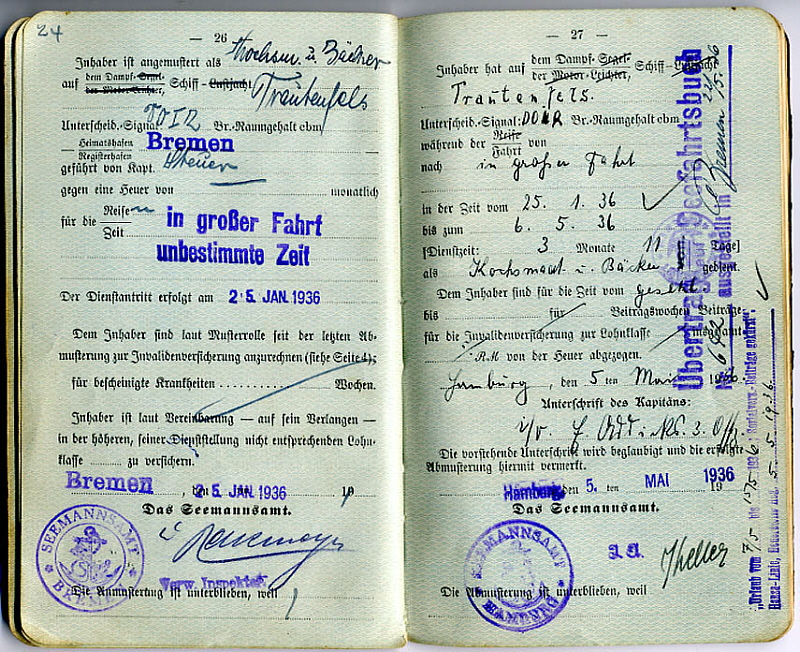 24
— 26
Inhaber ist angemustert als Kochsm. u. Bäcker
auf dem Dampf-Segel-
der Motor-Leichter, Schiff-Lustjacht Trautenfels
Unterscheid.-Signal: DOIR Br.-Raumgehalt cbm
Heimatshafen
Registerhafen Bremen
geführt von Kapt. Steuer
gegen eine Heuer von monatlich
für die Reise
Zeit in großer Fahrt
unbestimmte Zeit
Der Dienstantritt erfolgt am 25. JAN. 1936
Dem Inhaber sind laut Musterrolle seit der letzten Ab-
musterung zur Invalidenversicherung anzurechnen (siehe Seite 4);
für bescheinigte Krankheiten .......... Wochen.
Inhaber ist laut Vereinbarung — auf sein Verlangen —
in der höheren, seiner Dienststellung nicht entsprechenden Lohn-
klasse ........ zu versichern.
Bremen, den 25. JAN. 1936 19
Das Seemannsamt.
Verw. Inspektor
SEEMANNSAMT
BREMEN
Die Anmusterung ist unterblieben, weil
— 27 —
Inhaber hat auf dem Dampf-Segel-
der Motor-Leichter, Schiff-Lustjacht
Trautenfels.
Unterscheid.-Signal: DOIR Br.-Raumgehalt cbm
während der Reise
Fahrt von
nach in großer Fahrt
in der Zeit vom 25. 1. 36
bis zum 6. 5. 36
[Dienstzeit: 3 Monate 11 Tage]
als Kochsmaat u. Bäcker gedient.
Dem Inhaber sind für die Zeit vom
bis für Beitragswochen Beiträge
für die Invalidenversicherung zur Lohnklasse insgesamt
RM von der Heuer abgezogen.
Hamburg, den 5 ten Mai 1936.
Unterschrift des Kapitäns:
3. Offz.
Die vorstehende Unterschrift wird beglaubigt und die erfolgte
Abmusterung hiermit vermerkt.
Hamburg, den 5. MAI 1936 19
Das Seemannsamt.
SEEMANNSAMT
HAMBURG
Die Abmusterung ist unterblieben, weil
Übertrag auf Seefahrtsbuch
ausgestellt in Bremen